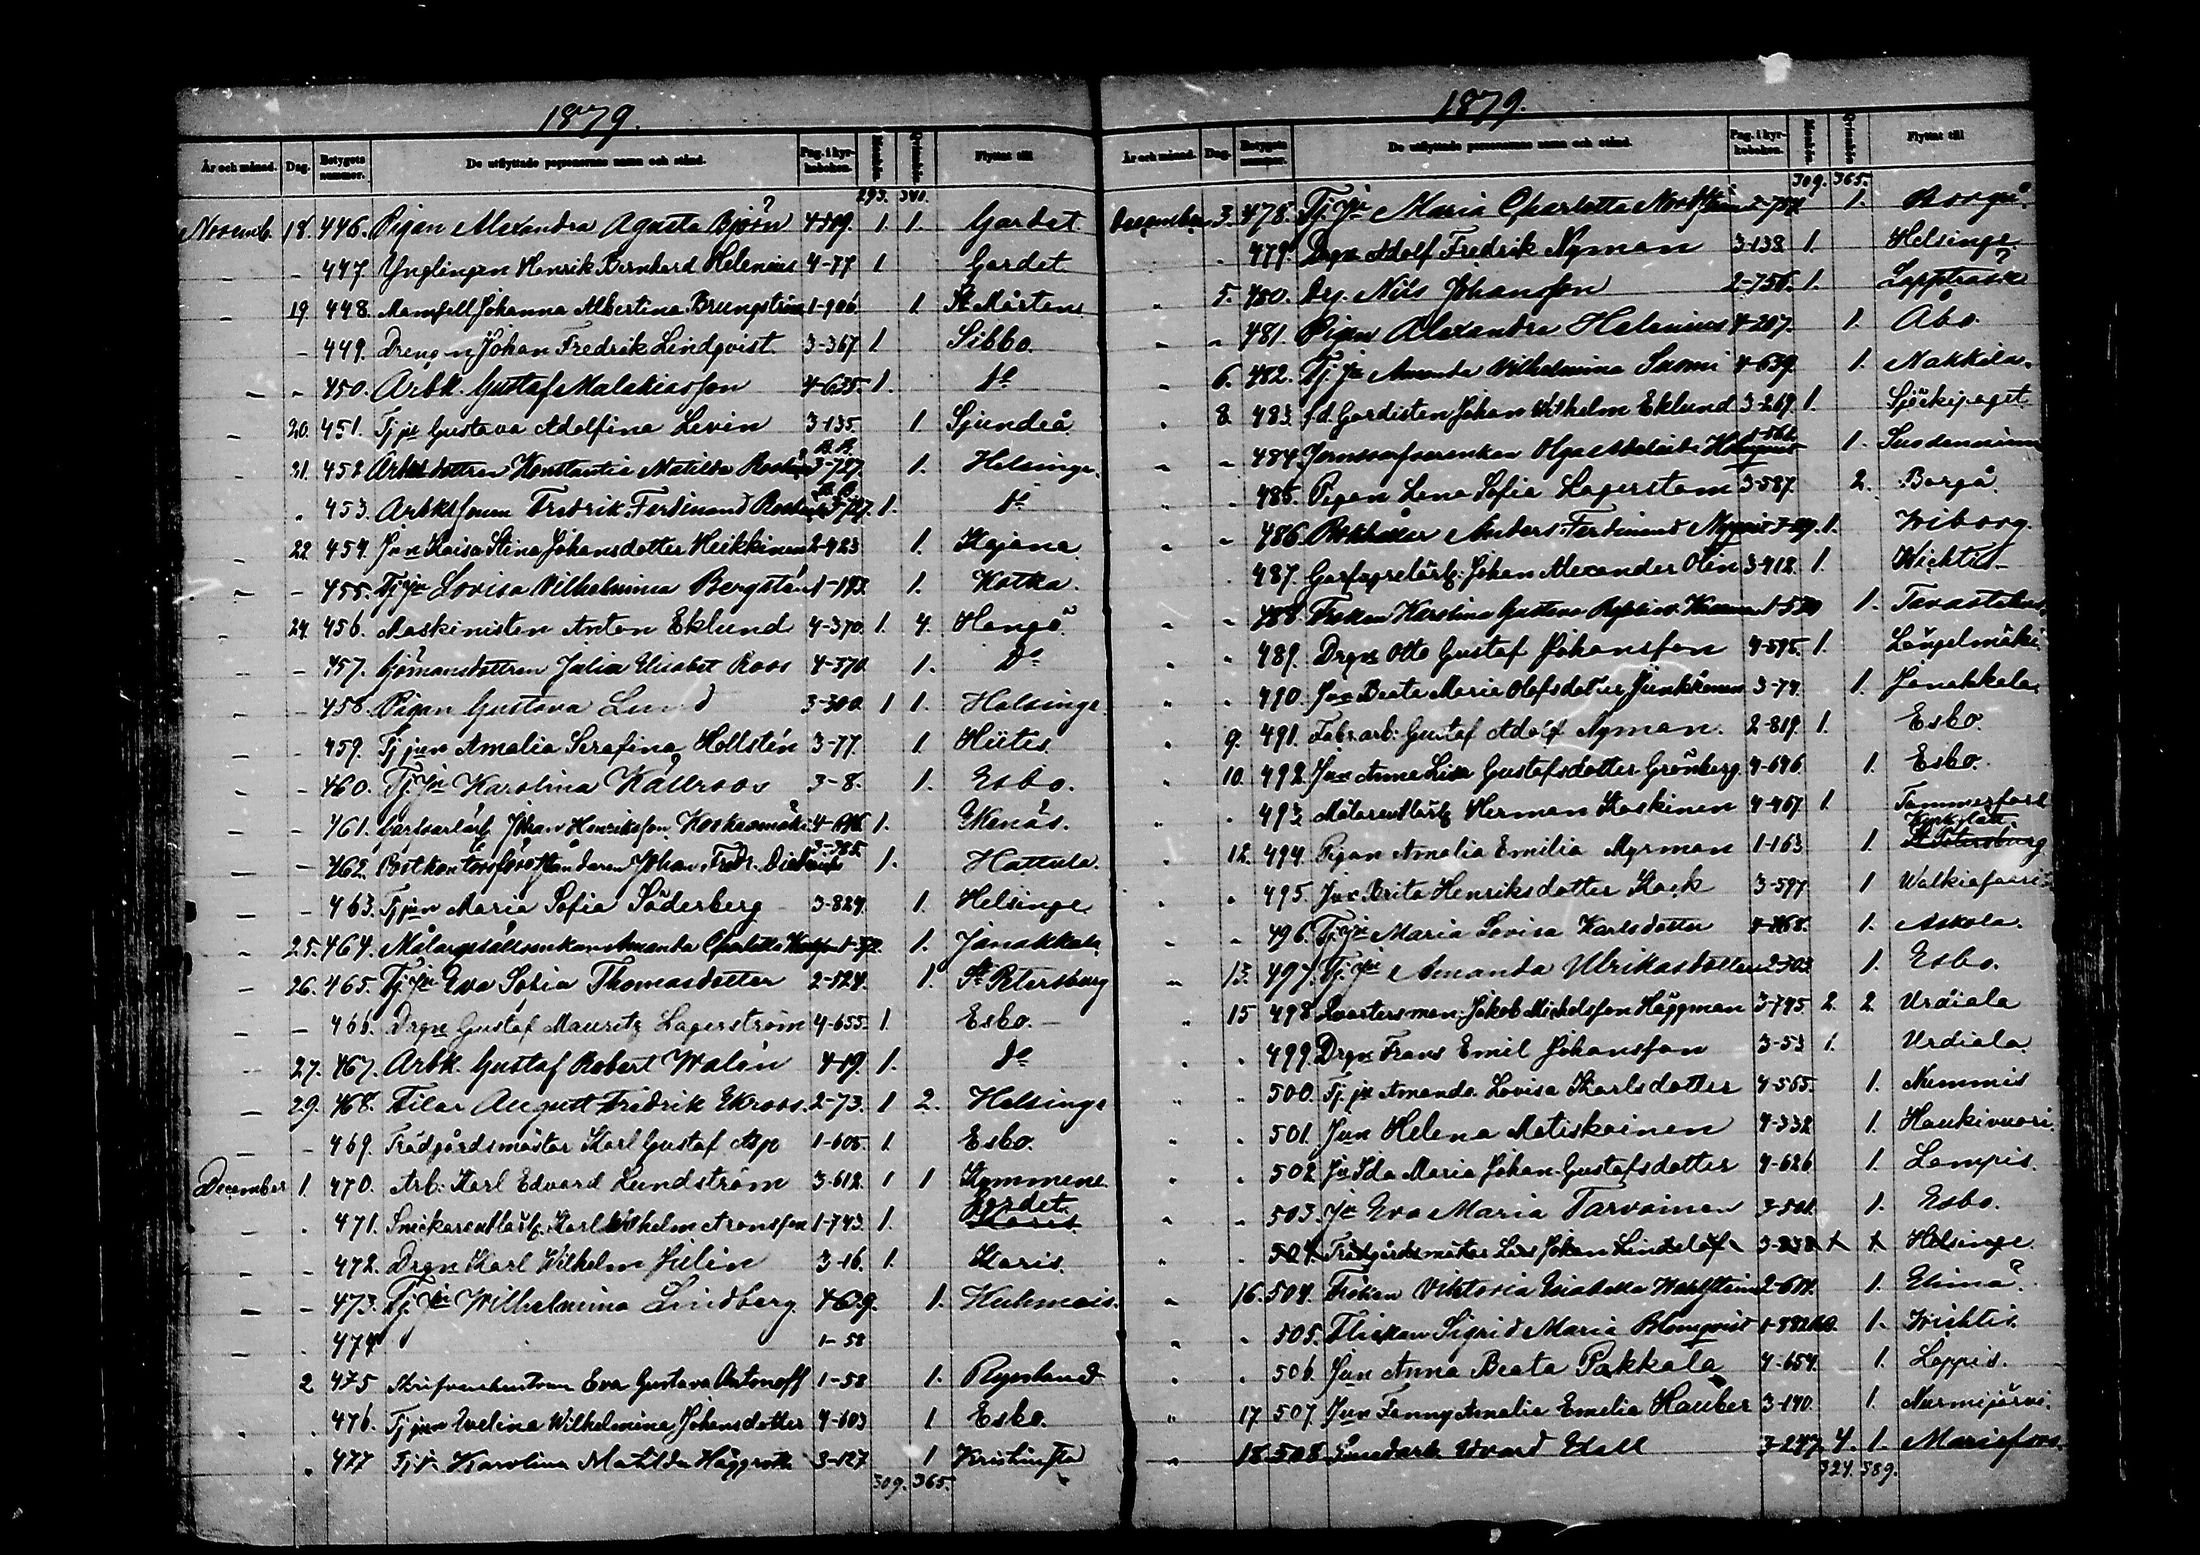 1879.
År och månad. Dag. Betygets nummer. De utflyttade personernas namn och stånd. Pag. i kyrkoboken. Mankön. Qvinkön. Flyttat till
293. 340.
Novemb. 18. 446. Pigan Alexandra Agusta Björn 4-519. 1. 1. Gardet.
— - 447 Ynglingen Henrik Bernhard Helenius 4-77 1 Gardet
— 19. 448. Mamsell Johanna Albertina Brungström 1-906. 1. St Mårtens
— - 449. Drengn Johan Fredrik Lindqvist. 3-367 1. Sibbo.
— - 450. Arbk. Gustaf Malakiasson 4-635. 1. do
— 20. 451. Tj jn Gustava Adolfina Levin 3-135. 1. Sjundeå
— 21. 452 Arbksdottren Konstantia Matilda 3-727. 1. Helsinge.
. 453. Arbkssonen Fredrik Ferdinand 3-727. 1. do
— 22 454. Jun Kaisa Stina Johansdotter Heikkinen 2-423 1. Kajana.
— - 455. Tj jn Lovisa Vilhelmina Bergstén 1-193. 1. Kotka.
— 24. 456. Maskinisten Anton Eklund 4-370. 1. 4. Hangö.
— - 457. Sjömansdottren Julia Elisabet Roos 4-370. 1. Do
— - 458. Pigan Gustava Lund 3-300. 1 1. Helsinge.
— - 459. Tj jun Amalia Serafina Hellstén 3-77. 1. Hiitis.
— - 460. Tj jn Karolina Kållroos 3-8. 1. Esbo.
— - 461. Johan Henriksson Koskenmäki 1. Ekenäs.
— - 462. Bokkontorsföreståndaren Johan Fredr. 3-785. 1. Hattula.
— - 463. Tj jun Maria Sofia Söderberg 3-824. 1. Helsinge
— 25. 464. Målargesällsenkan Amanda Charlotta 1. Janakkala
— 26. 465. Tj. jn Eva Sofia Thomasdotter 2-524. 1. St Petersburg
— - 466. Drgn Gustaf Mauritz Lagerström 4-655. 1. Esbo. —
— 27. 467. Arbk. Gustaf Robert Walén 4-19. 1. do
— 29. 468. Filar August Fredrik Ekroos. 2-73. 1 2. Helsinge
— - 469. Trädgårdsmästar Karl Gustaf Asp 1-605. 1. Esbo.
December 1. 470. Arb. Karl Edvard Lundström 3-612. 1 1 Kymmene
— . 471. Snickarentlärl. Karl Wilhelm Aronsson 1-743. 1. Gardet. Karis
— - 472. Drgn Karl Wilhelm Julin 3-16. 1. Karis.
— - 473. Tj jn Wilhelmina Lindberg 4-639. 1. Kuhmois.
— . 474 1-58
2 475 Eva Gustava Antonoff 1-58 1. Ryssland
. 476. Tj jun Evelina Wilhelmina Johansdotter 4-603 1 Esbo.
. 477 Tj jn Karolina Matilda Häggroth 3-127 1 Kristinesta
309. 365.
1879.
År och månad. Dag. Betygets nummer. De utflyttade personernas namn och stånd. Pag. i kyrkoboken. Mankön. Qvinkön. Flyttat till
309. 365.
December 3. 478. Tj. jn Maria Charlotta 1. Borgå.
. 479. Drgn Adolf Fredrik Nyman 3-138 1. Helsinge
„ 5. 480. Drg. Nils Johansson 2-756. 1. Lapptresk
„ - 481. Pigan Alexandra Helenius 4-207. 1. Åbo.
„ 6. 482. Tj. jn Amanda Vilhelmina Suomi 4-639. 1. Nakkila.
. 8. 483. fd. Gardisten Johan Wilhelm Eklund 3-269 1. Sjöekipaget.
„ - 484. Olga Adelaide 1. Suodenniemi
„ . 485. Pigan Lena Sofia Lagerstam 3-587. 2. Borgå.
„ - 486. Bokhållar Anders Ferdinand Nyqvist 1. Wiborg.
. 487. Johan Alexander Olin 3-412. 1. Wichtis
„ - 488. Fröken Karolina Gustava 1. Tavastehus.
„ . 489. Drgn Otto Gustaf Johansson 4-595. 1. Längelmäki.
„ . 490. Jun Beata Maria Olofsdotter Junkkonen 3-74. 1. Janakkala.
„ 9. 491. Fabr. arb: Gustaf Adolf Nyman. 2-819. 1. Esbo.
„ 10. 492. Jun Anna Lisa Gustafsdotter Grönberg 4-696. 1. Esbo.
„ . 493. Målarentlärl. Herman Koskinen 4-467. 1. Tammerfors
. 12. 494. Pigan Amalia Emilia Myrman 1-163 1. Kyrkslätt St Petersburg
„ . 495. Jun Brita Henriksdotter Kock 3-597 1 Walkiasaari
„ - 496. Tj jn Maria Lovisa Karlsdotter 1. Askola.
„ 13. 497. Tj. jn Amanda Ulrikasdotter 2-303 1. Esbo.
„ 15 498. Qvartersman: Jakob Mickelsson Häggman 3-795 2. 2. Urdiala
„ . 499. Drgn Frans Emil Johansson 3-53 1. Urdiala.
„ . 500. Tj. jn Amanda Lovisa Karlsdotter 4-565. 1. Nummis
„ . 501. Jun Helena Matiskainen 4-332 1. Haukivuori.
„ . 502. Jn Ida Maria Johan-Gustafsdotter 4-626 1. Lampis.
„ . 503. Jn Eva Maria Tarvainen 3-501. 1. Esbo.
„ . 504. Trädgårdsmästar Lars Johan Lindelöf 3-238 Helsinge.
„ 16. 504. Fröken Viktoria Elisabeth 1. Elimä.
„ . 505. Flickan Sigrid Maria Blomqvist 1. Wichtis.
„ . 506. Jun Anna Beata Pakkala 4-654. 1. Loppis.
„ 17 507. Jun Fanny Amalia Emelia Hauber 3-140. 1. Nurmijärvi.
„ 18. 508. Edvard Edell 3-247. 4. 1. Mariefors.
324. 389.